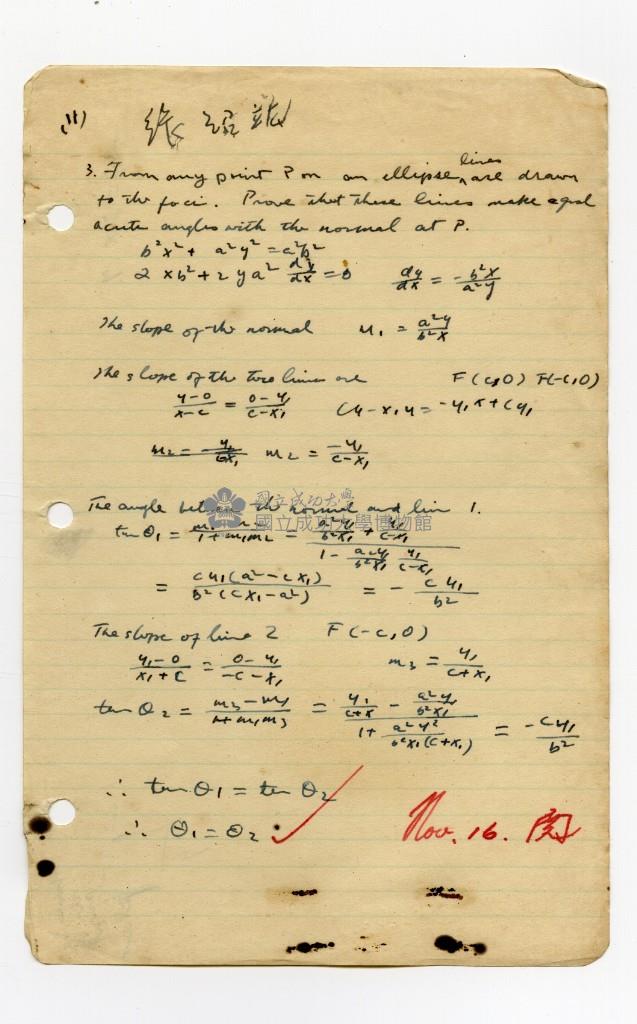 (11)
3. From any point P on an ellipse, lines are drawn
to the foci. Prove that these lines make equal
acute angles with the normal at P.
b²x² + a²y² = a²b²
2xb² + 2ya² dy/dx = 0    dy/dx = -b²x/a²y
The slope of the normal    m₁ = a²y/b²x
The slope of the two lines are    F(c,0) F(-c,0)
(y-0)/(x-c) = (0-y₁)/(c-x₁)    cy-x₁y = -y₁x+cy₁
m₂ = -y₁/(c-x₁)
The angle between the normal and line 1.
國立成功大學
國立成功大學博物館
tan θ₁ = (m₁-m₂)/(1+m₁m₂) = (a²y₁/b²x₁ + y₁/(c-x₁))/(1 - a²y₁/b²x₁ y₁/(c-x₁))
= cy₁(a²-cx₁)/b²(cx₁-a²) = - cy₁/b²
The slope of line 2    F(-c,0)
(y₁-0)/(x₁+c) = (0-y₁)/(-c-x₁)    m₃ = y₁/(c+x₁)
tan θ₂ = (m₃-m₁)/(1+m₁m₃) = (y₁/(c+x) - a²y₁/b²x₁)/(1 + a²y²/b²x₁(c+x₁)) = -cy₁/b²
∴ tan θ₁ = tan θ₂
∴ θ₁ = θ₂
Nov. 16.